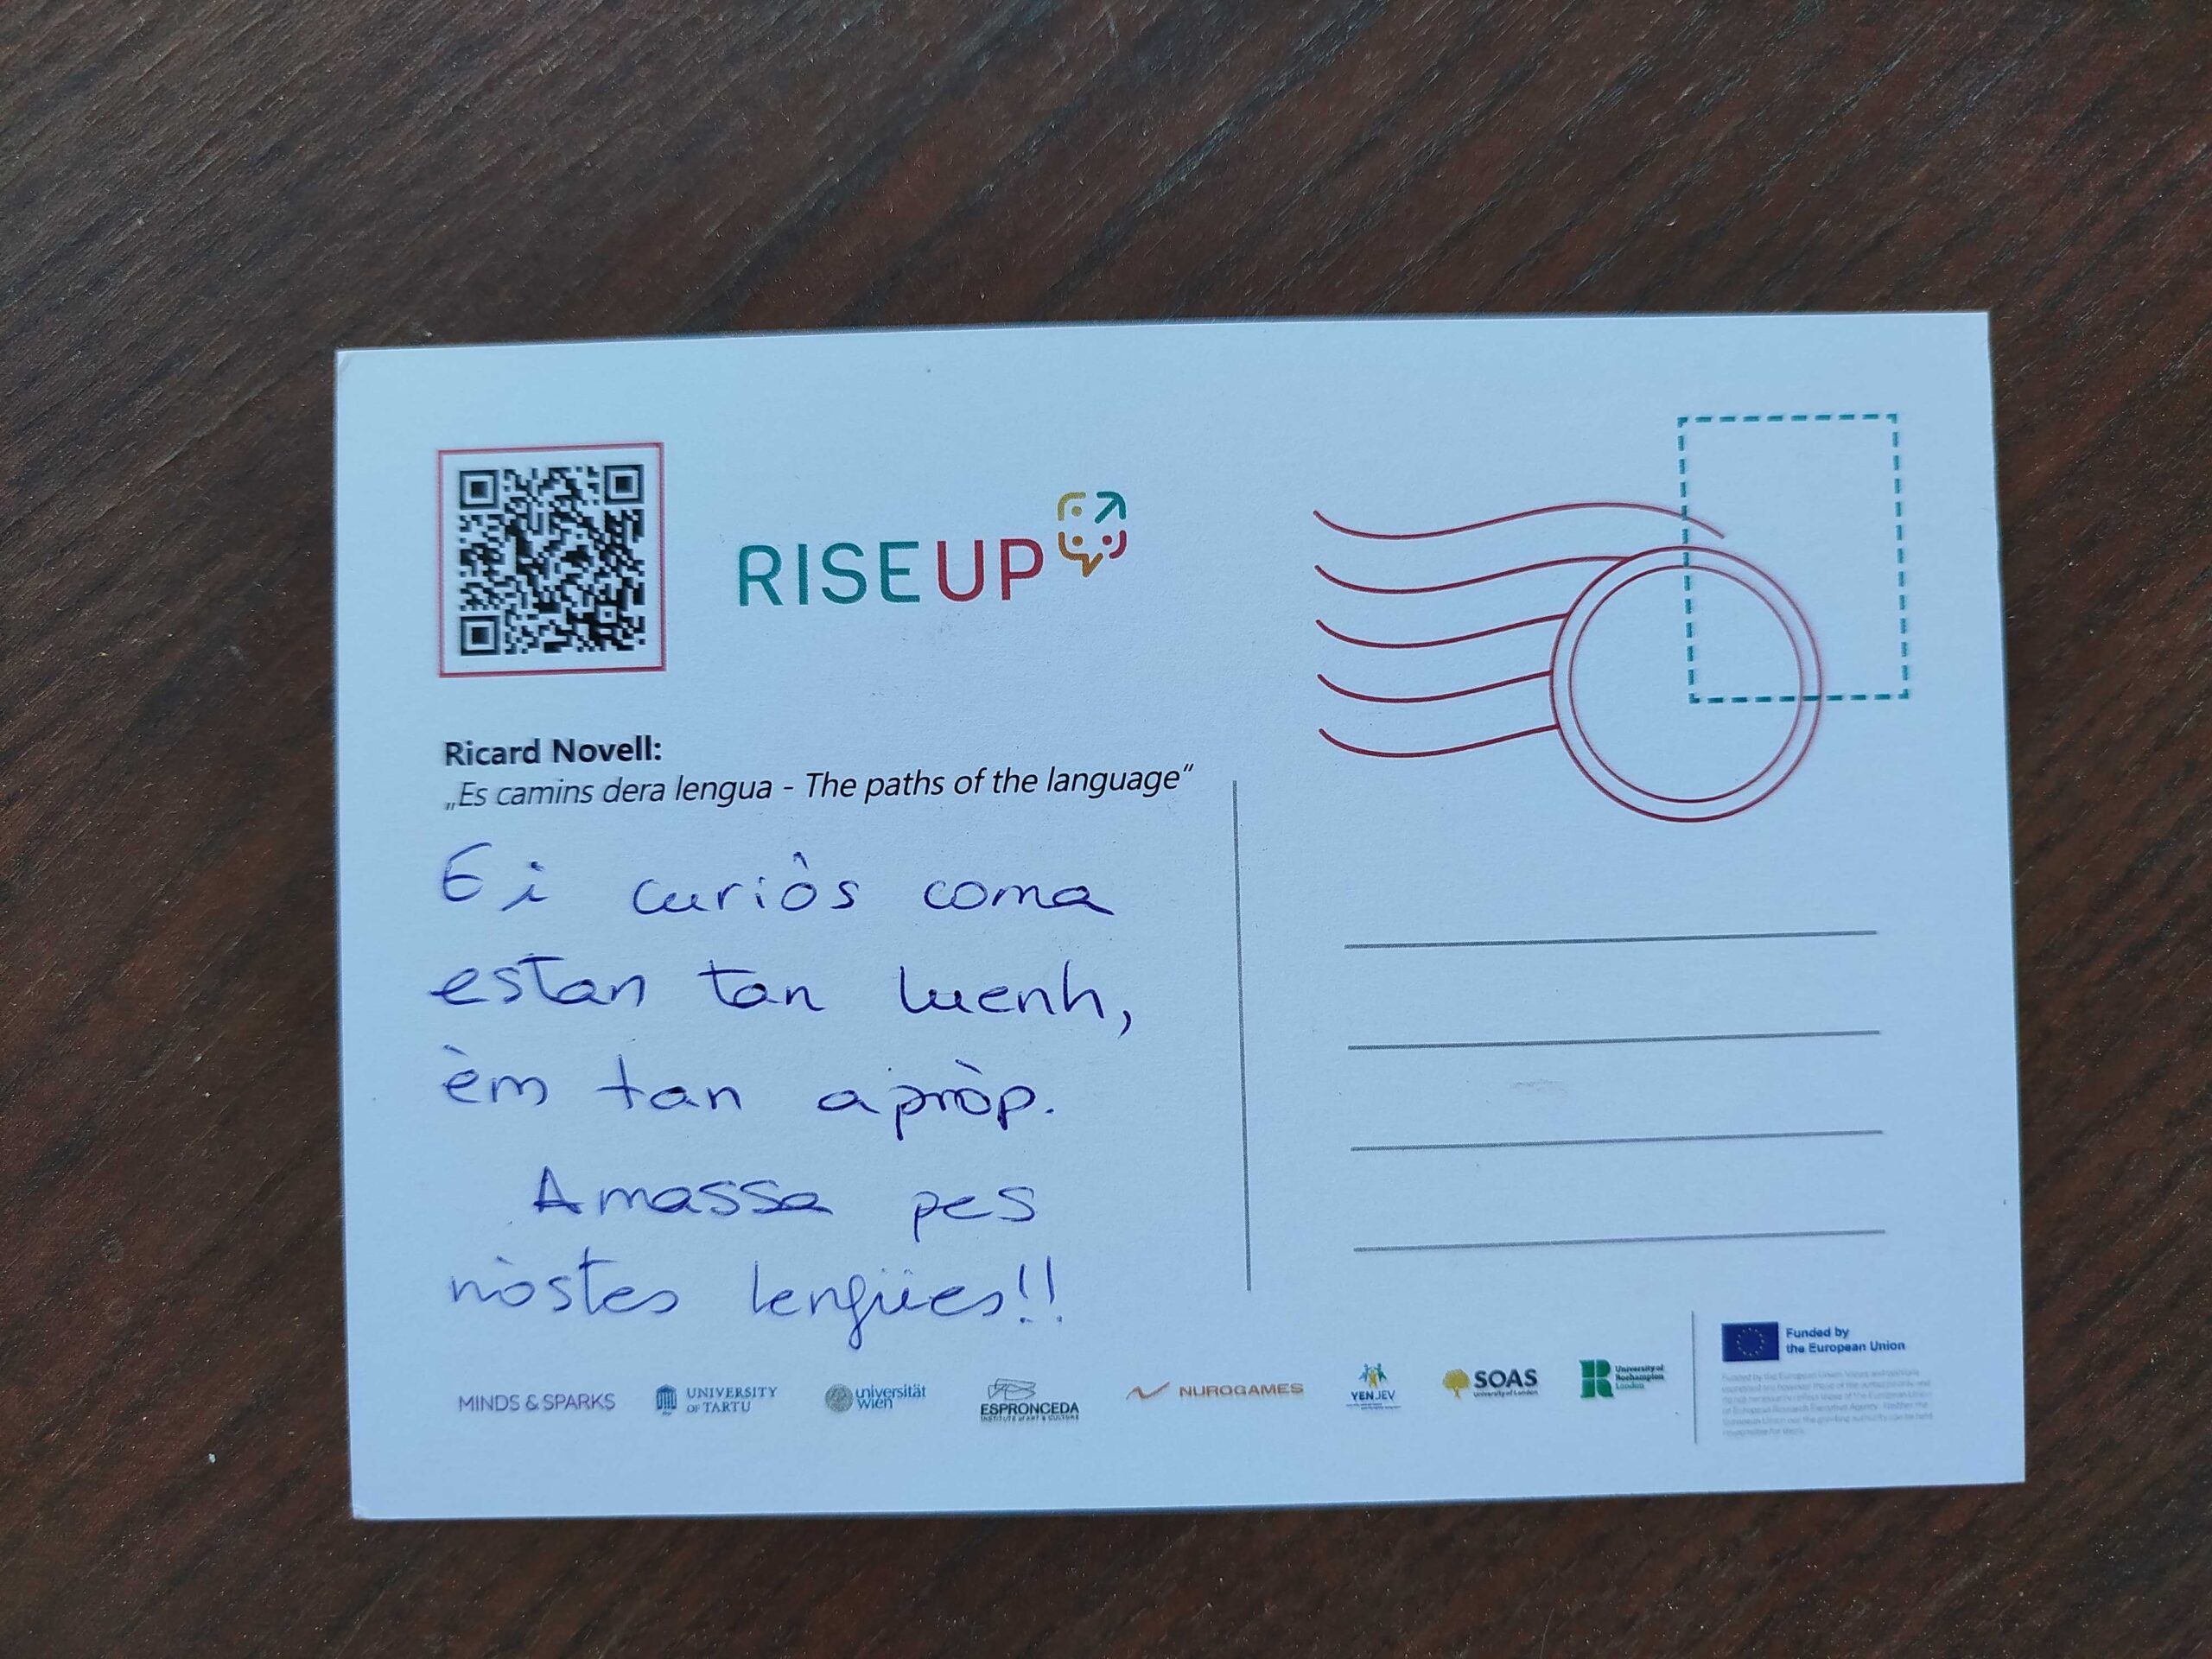 RISEUP
Ricard Novell:
„Es camins dera lengua - The paths of the language“
Ei curiòs coma
estan tan luenh,
èm tan apròp.
Amassa pes
nòstes lengües!!
MINDS & SPARKS
UNIVERSITY
OF TARTU
universität
wien
ESPRONCEDA
INSTITUTE of ART & CULTURE
NUROGAMES
YENJEV
SOAS
University of London
University of
Roehampton
London
Funded by
the European Union